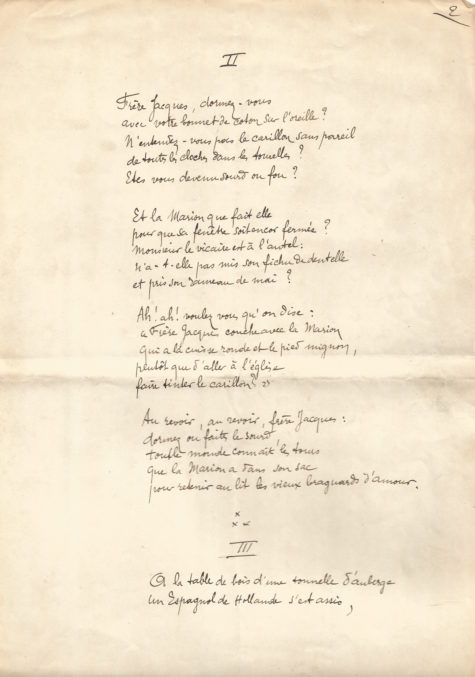 2
II
Frère Jacques, dormez-vous
avec votre bonnet de coton sur l'oreille ?
N'entendez-vous pas le carillon sans pareil
de toutes les cloches dans les tourelles ?
Etes vous devenu sourd ou fou ?
Et la Marion que fait elle
pour que sa fenêtre soit encor fermée ?
Monsieur le vicaire est à l'autel :
n'a-t-elle pas mis son fichu de dentelle
et pris son rameau de mai ?
Ah ! ah ! voulez vous qu'on dise :
« Frère Jacques couche avec la Marion
qui a la cuisse ronde et le pied mignon,
plutôt que d'aller à l'église
faire tinter le carillon ? »
Au revoir, au revoir, frère Jacques :
dormez ou faites le sourd,
tout le monde connaît les tours
que la Marion a dans son sac
pour retenir au lit les vieux braguards d'amour.
x
x x
III
A la table de bois d'une tonnelle d'auberge
un Espagnol de Hollande s'est assis,